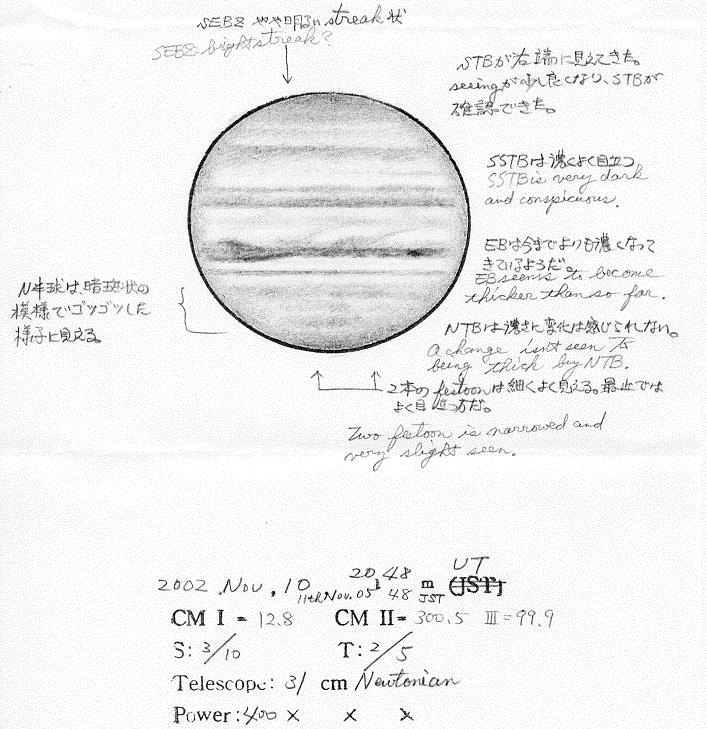 SEBZ やや明るい streak 状
SEBZ bright streak?
STBが右端に見えてきた。
seeingが少し良くなり、STBが
確認できた。
SSTBは濃くよく目立つ
SSTB is very dark
and conspicuous.
EBは今までよりも濃くなって
きているようだ。
EB seems to become
thicker than so far.
N半球は、暗斑状の
模様でゴツゴツした
様子に見える。
NTBは濃さに変化は感じられない。
A change isn't seen to
being thick by NTB.
2本のfestoonは細くよく見える。最近では
よく目立つ方だ。
Two festoon is narrowed and
very slight seen.
2002 .Nov. 10 20 48 m (JST) UT
11th Nov. 05 48 JST
CM I = 12.8 CM II= 300.5 III=99.9
S: 3/10 T: 2/5
Telescope: 31 cm Newtonian
Power: 400 × × ×